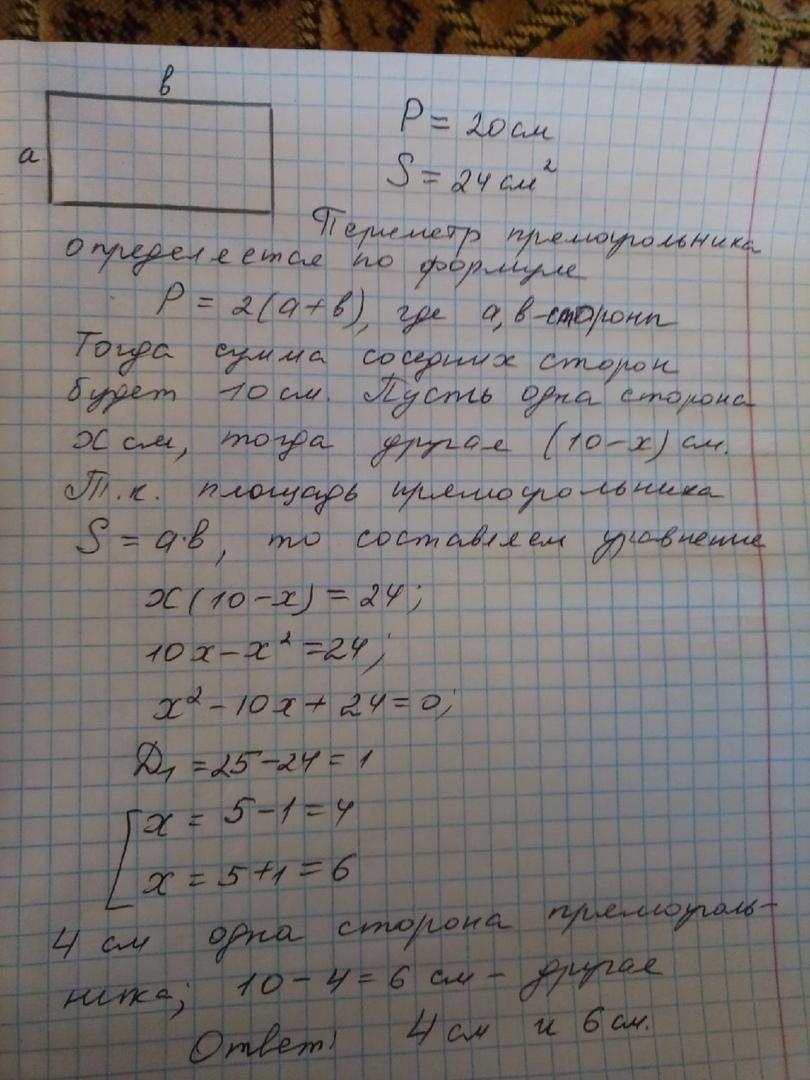 в
а
P = 20 см
S = 24 см²
Периметр прямоугольника
определяется по формуле
P = 2(а+в), где а, в - стороны
Тогда сумма соседних сторон
будет 10 см. Пусть одна сторона
x см, тогда другая (10-x) см.
Т.к. площадь прямоугольника
S = а·в, то составляем уравнение
x(10-x) = 24;
10x-x² = 24;
x²-10x+24=0;
D₁ = 25-24 = 1
[ x = 5-1 = 4
x = 5+1 = 6
4 см одна сторона прямоуголь-
ника; 10-4=6 см - другая
Ответ: 4 см и 6 см.